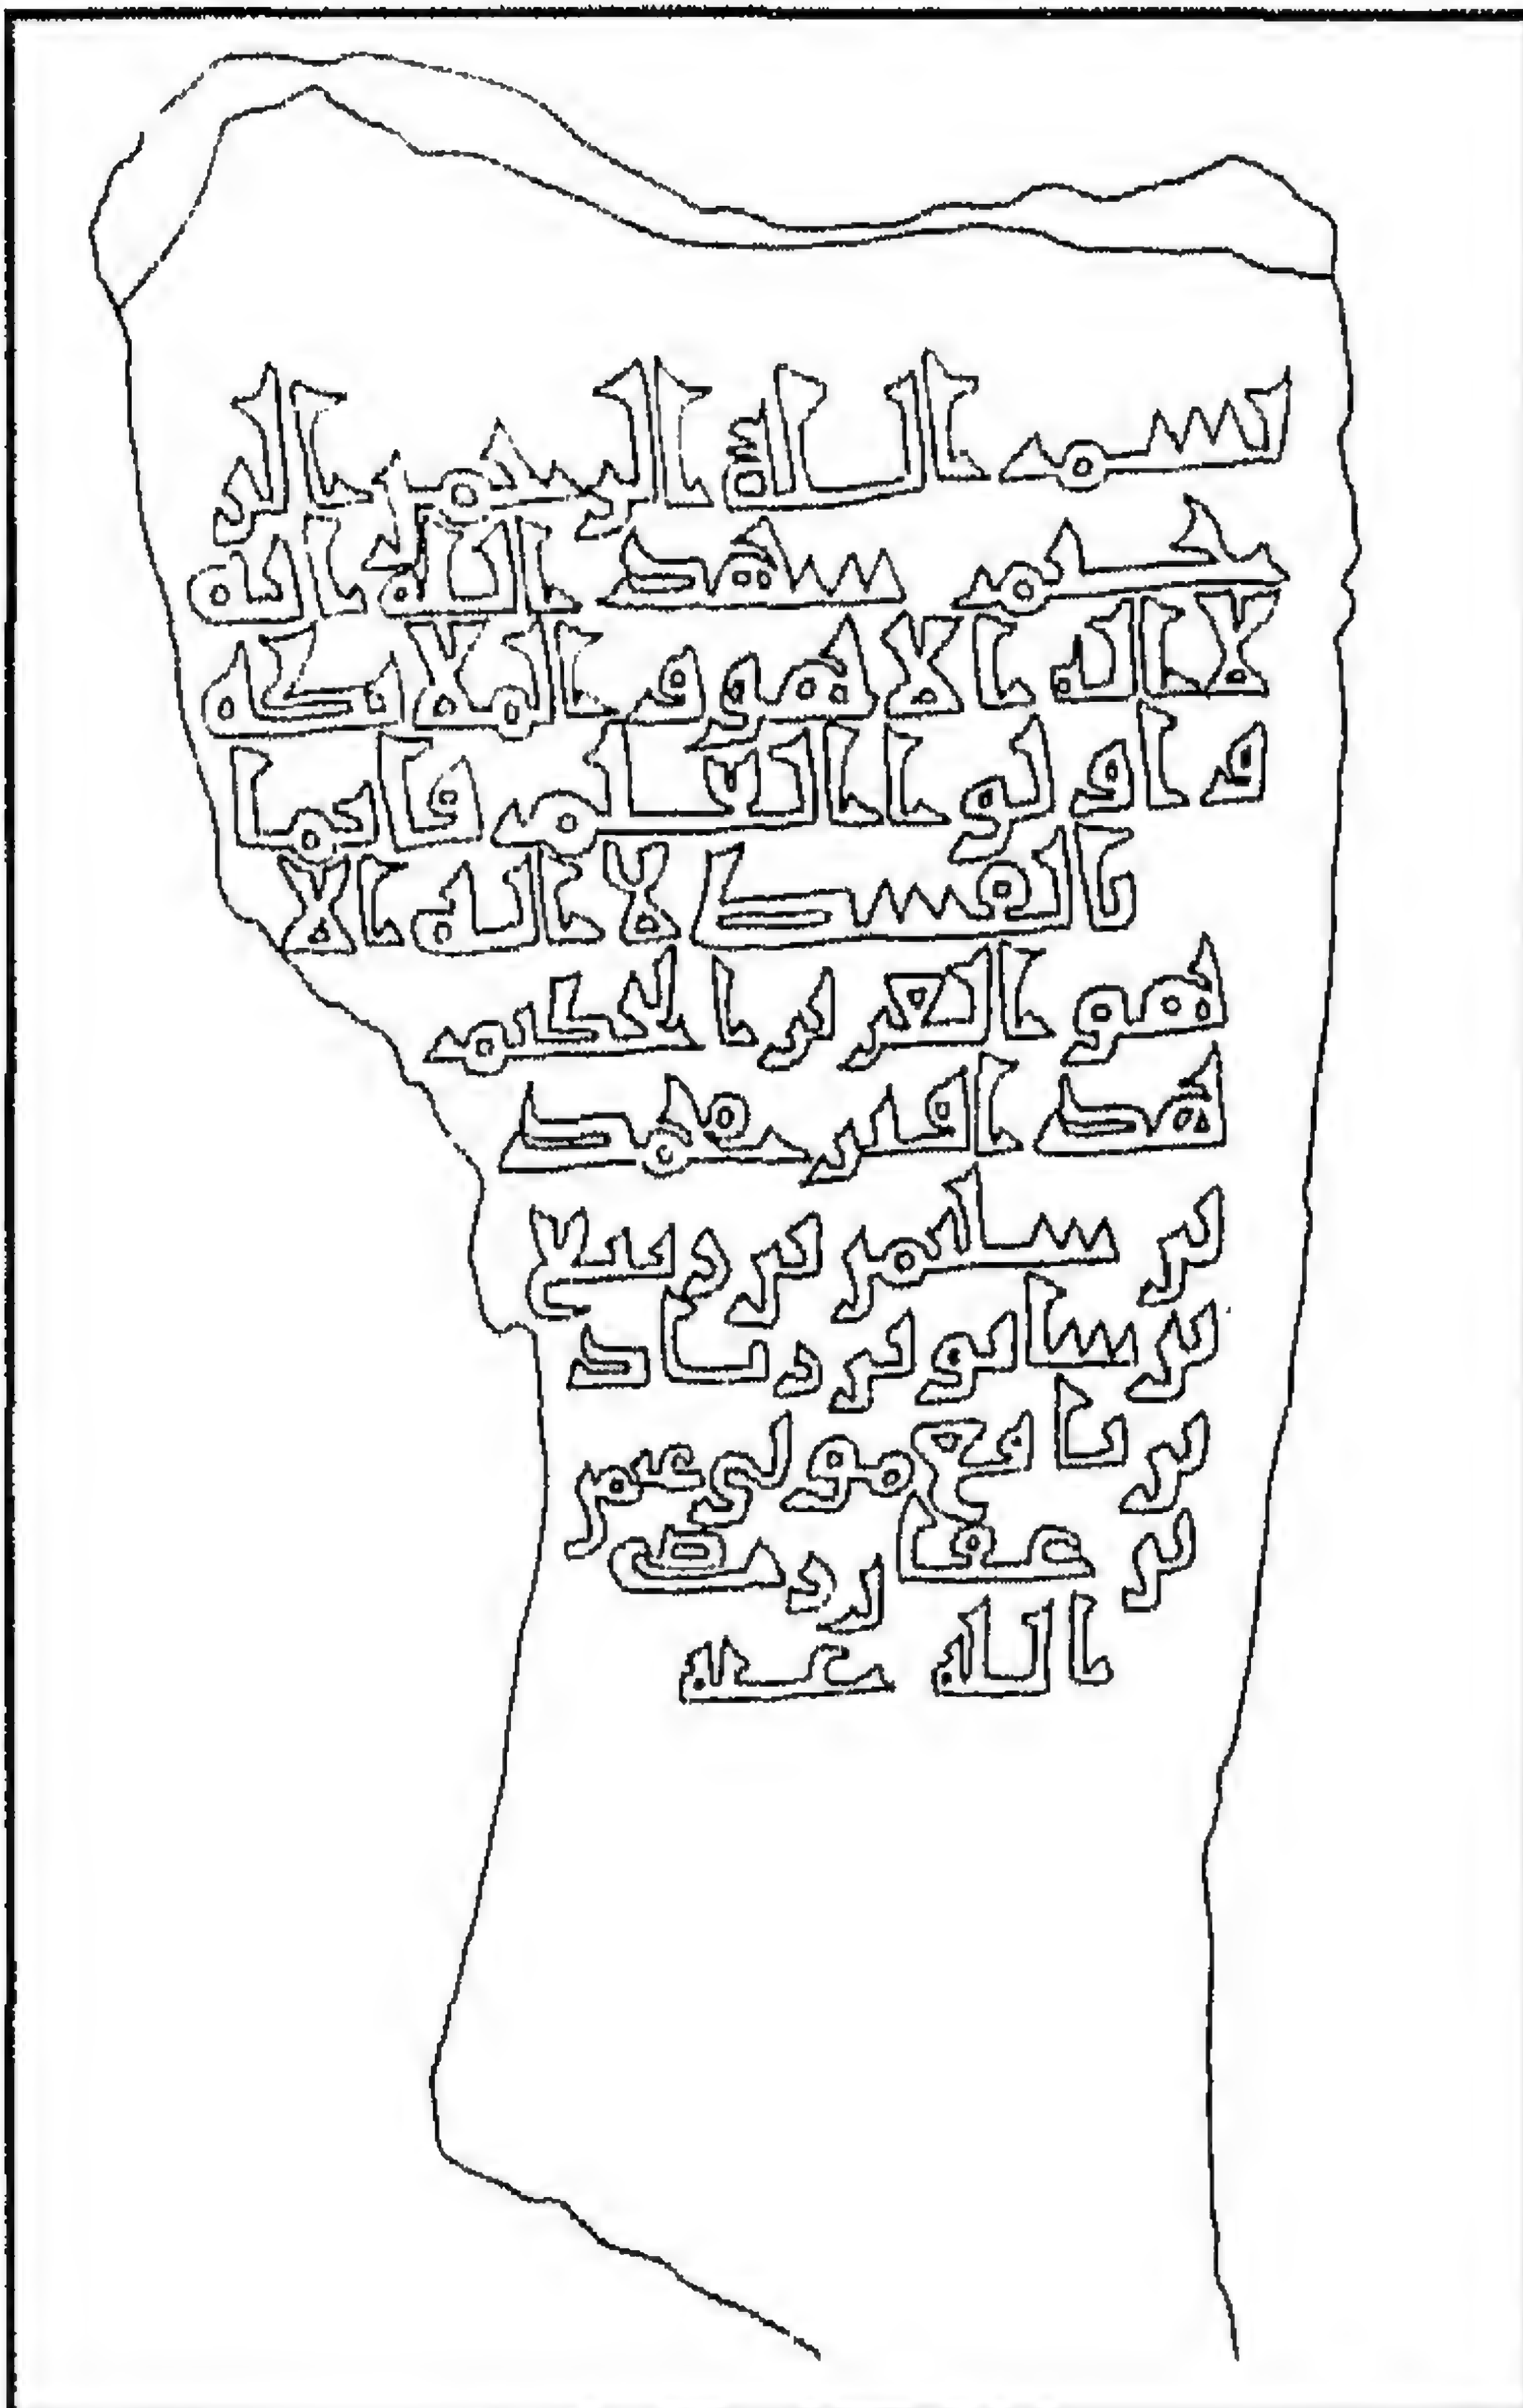 بسم الله الرحمن الر
حيم شهد الله انه
لا اله الا هو والملائكة
واولوا العلم قائما
بالقسط لا اله الا
هو العزيز الحكيم
هذا قبر محمد
بن سالم بن ربيع
بن بن زياد
بن نافع مولى عثمن
بن عفان رضي
الله عنه